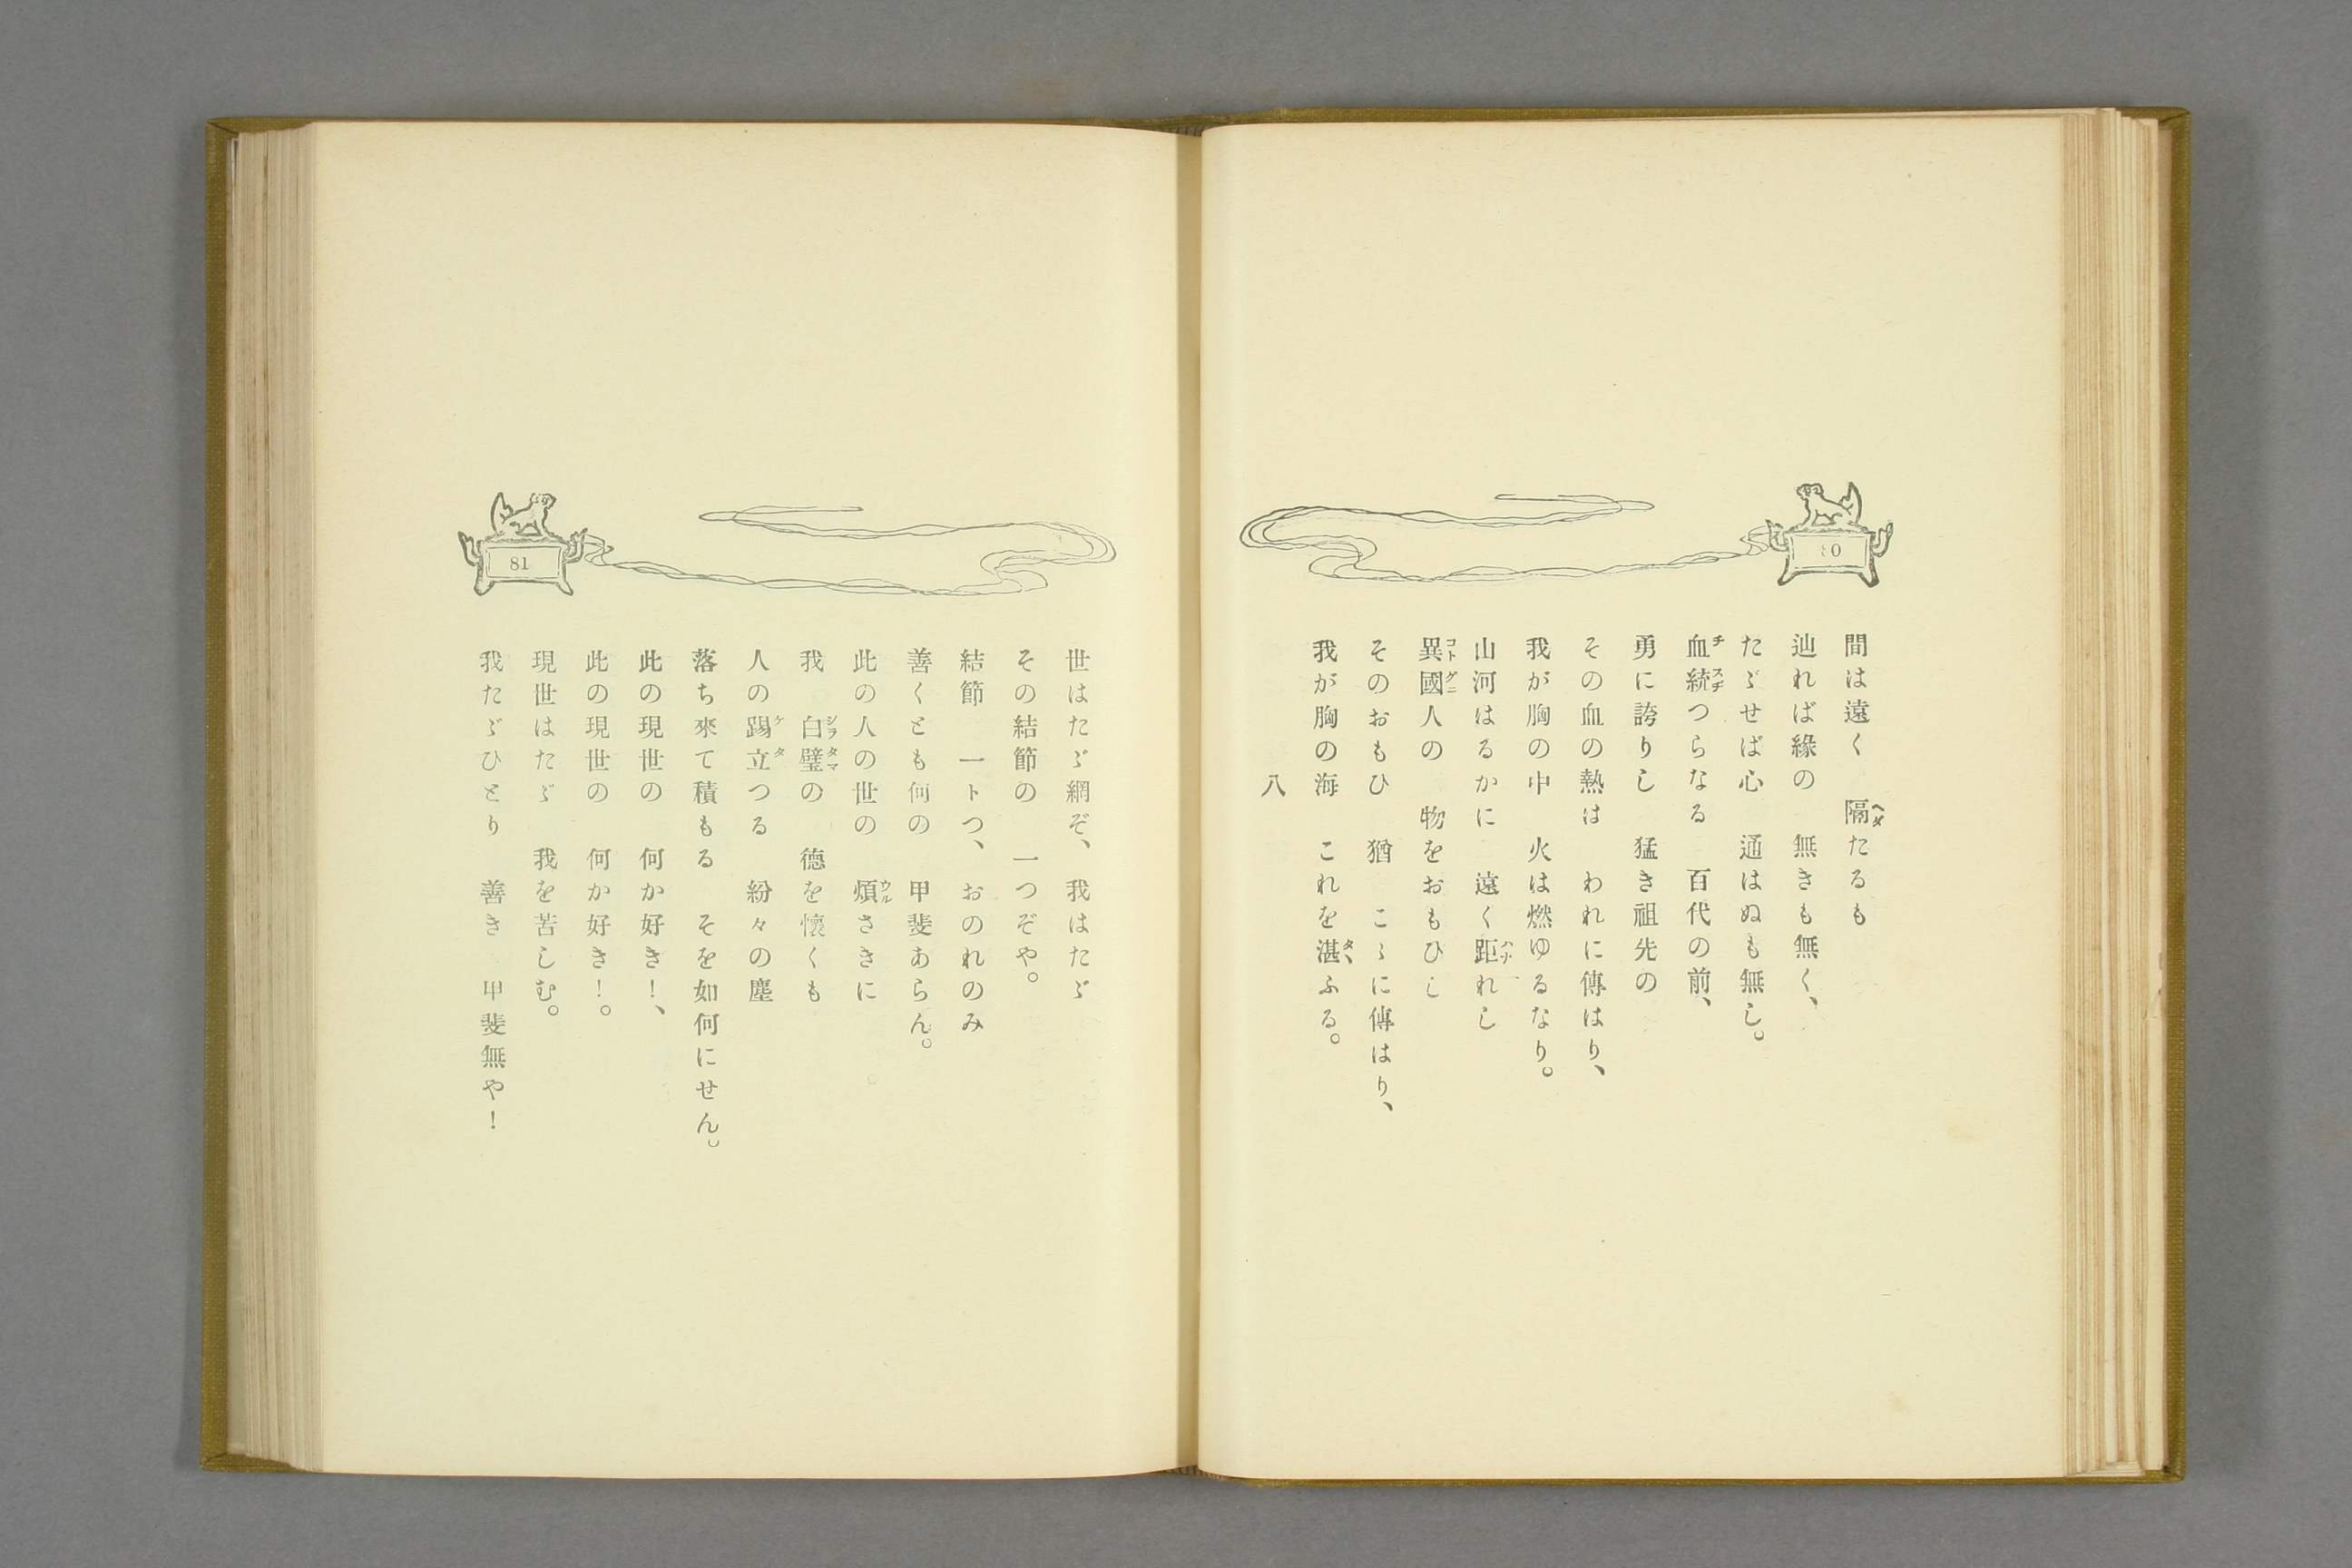 80
間は遠く　隔たるも
辿れば緣の　無きも無く、
たゞせば心　通はぬも無し。
血統つらなる　百代の前、
勇に誇りし　猛き祖先の
その血の熱は　われに傳はり、
我が胸の中　火は燃ゆるなり。
山河はるかに　遠く距れし
異國人の　物をおもひし
そのおもひ　猶　こゝに傳はり、
我が胸の海　これを湛ふる。
八
81
世はたゞ網ぞ、我はたゞ
その結節の　一つぞや。
結節　一トつ、おのれのみ
善くとも何の　甲斐あらん。
此の人の世の　煩さきに
我　白璧の　德を懷くも
人の踢立つる　紛々の塵
落ち來て積もる　そを如何にせん。
此の現世の　何か好き！、
此の現世の　何か好き！。
現世はたゞ　我を苦しむ。
我たゞひとり　善き　甲斐無や！